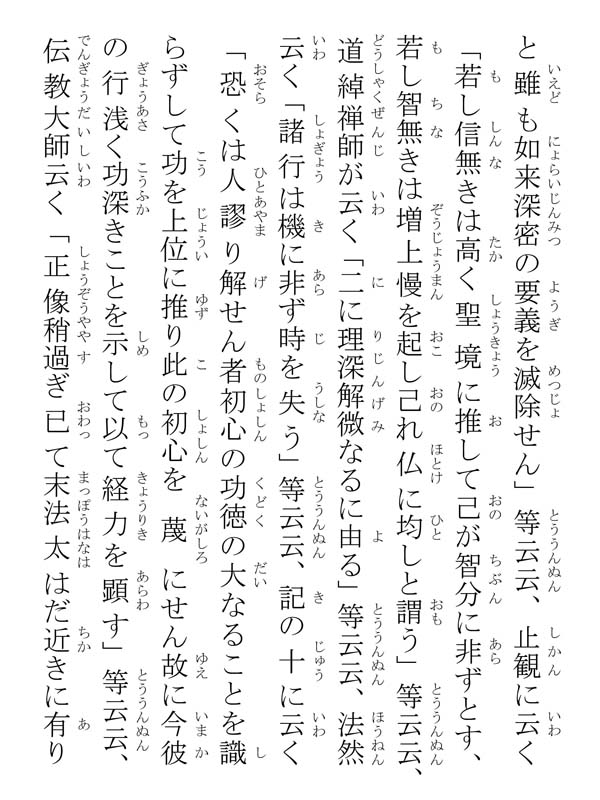 と雖も如来深密の要義を滅除せん」等云云、止観に云く
「若し信無きは高く聖境に推して己が智分に非ずとす、
若し智無きは増上慢を起し己れ仏に均しと謂う」等云云、
道綽禅師が云く「二に理深解微なるに由る」等云云、法然
云く「諸行は機に非ず時を失う」等云云、記の十に云く
「恐くは人謬り解せん者初心の功徳の大なることを識
らずして功を上位に推り此の初心を蔑にせん故に今彼
の行浅く功深きことを示して以て経力を顕す」等云云、
伝教大師云く「正像稍過ぎ已て末法太はだ近きに有り